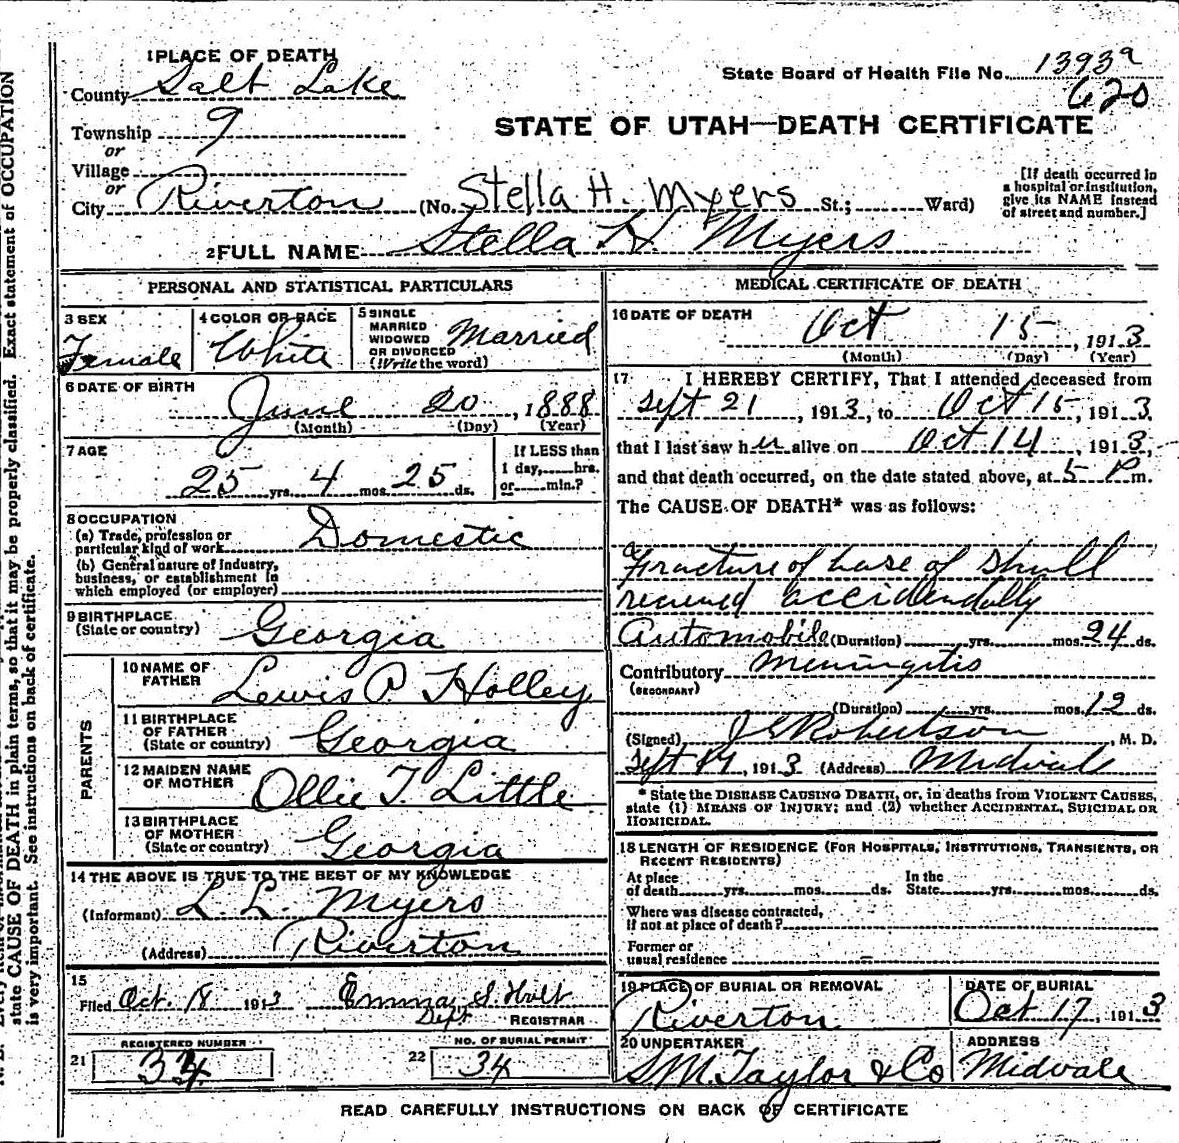 1 PLACE OF DEATH
County Salt Lake
State Board of Health File No. 1393a
620
Township 9
or
Village
or
City Riverton (No. Stella H. Myers St.; Ward)
STATE OF UTAH—DEATH CERTIFICATE
[If death occurred in
a hospital or institution,
give its NAME instead
of street and number.]
2 FULL NAME Stella H. Myers
PERSONAL AND STATISTICAL PARTICULARS
3 SEX
Female
4 COLOR OR RACE
White
5 SINGLE
MARRIED
WIDOWED
OR DIVORCED
(Write the word)
Married
6 DATE OF BIRTH
June 20, 1888
(Month) (Day) (Year)
7 AGE
25 yrs. 4 mos. 25 ds.
If LESS than
1 day, hrs.
or min.?
8 OCCUPATION
(a) Trade, profession or
particular kind of work Domestic
(b) General nature of industry,
business, or establishment in
which employed (or employer)
9 BIRTHPLACE
(State or country) Georgia
PARENTS
10 NAME OF
FATHER Lewis P. Holley
11 BIRTHPLACE
OF FATHER
(State or country) Georgia
12 MAIDEN NAME
OF MOTHER Ollie T. Little
13 BIRTHPLACE
OF MOTHER
(State or country) Georgia
14 THE ABOVE IS TRUE TO THE BEST OF MY KNOWLEDGE
(Informant) L. L. Myers
(Address) Riverton
15
Filed Oct. 18 1913 Emma S. Holt
Dept REGISTRAR
REGISTERED NUMBER
21 34
NO. OF BURIAL PERMIT
22 34
MEDICAL CERTIFICATE OF DEATH
16 DATE OF DEATH
Oct 15, 1913
(Month) (Day) (Year)
17 I HEREBY CERTIFY, That I attended deceased from
Sept 21, 1913, to Oct 15, 1913
that I last saw her alive on Oct 14, 1913,
and that death occurred, on the date stated above, at 5 P m.
The CAUSE OF DEATH* was as follows:
Fracture of base of skull
received accidendally
Automobile (Duration) yrs. mos. 24 ds.
Contributory Meningitis
(SECONDARY)
(Duration) yrs. mos. 12 ds.
(Signed) J G Robertson, M. D.
Sept 17, 1913 (Address) Midvale
* State the DISEASE CAUSING DEATH, or, in deaths from VIOLENT CAUSES,
state (1) MEANS OF INJURY; and (2) whether ACCIDENTAL, SUICIDAL OR
HOMICIDAL.
18 LENGTH OF RESIDENCE (FOR HOSPITALS, INSTITUTIONS, TRANSIENTS, OR
RECENT RESIDENTS)
At place
of death yrs. mos. ds.
In the
State yrs. mos. ds.
Where was disease contracted,
if not at place of death?
Former or
usual residence
19 PLACE OF BURIAL OR REMOVAL
Riverton
DATE OF BURIAL
Oct 17, 1913
20 UNDERTAKER
S.M. Taylor & Co
ADDRESS
Midvale
READ CAREFULLY INSTRUCTIONS ON BACK OF CERTIFICATE
state CAUSE OF DEATH in plain terms, so that it may be properly classified. Exact statement of OCCUPATION
is very important. See instructions on back of certificate.